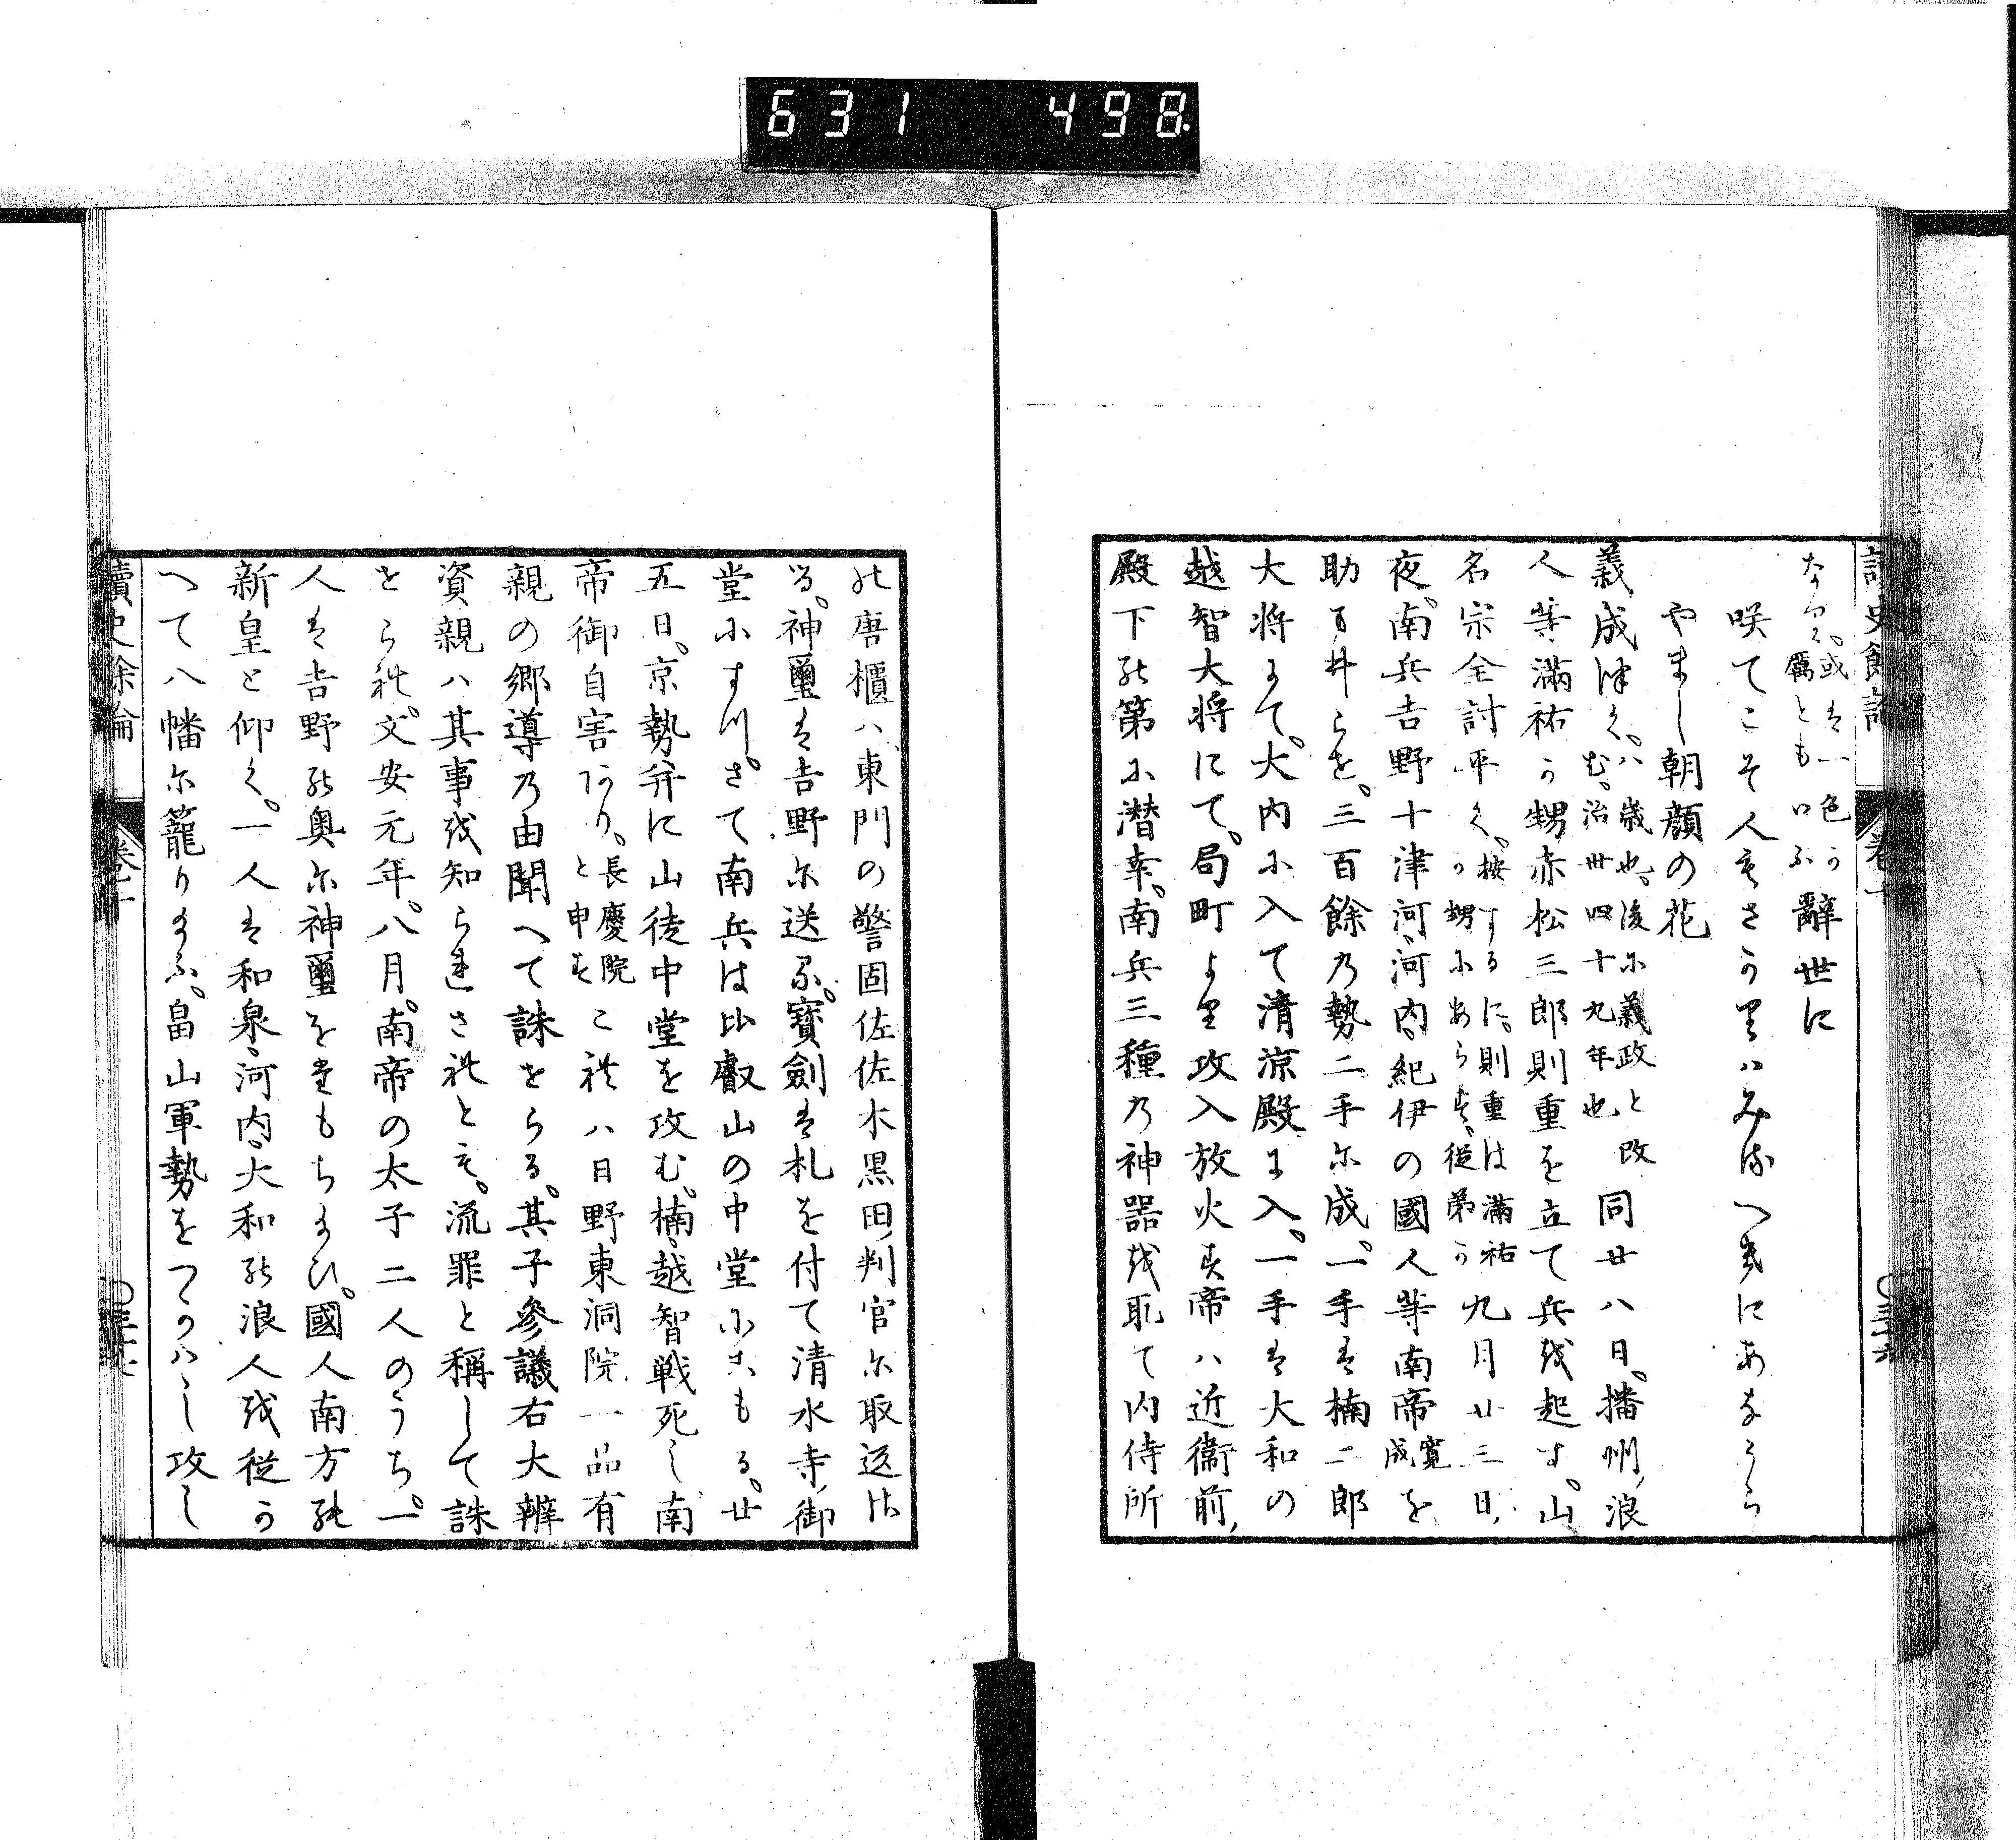 631 498
讀史餘論 巻十 三十六
なり。或は一色か屬ともいふ 辭世に
咲てこそ人もさかりはみるへきにあなうら
やまし朝顔の花
義成継く。八歳也、後に義政と改む。治世四十九年也 同廿八日。播州、浪
人等滿祐か甥赤松三郎則重を立て兵を起す。山
名宗全討平く。按するに、則重は滿祐か甥にあらす、従弟か 九月廿三日、
夜、南兵吉野十津河、河内、紀伊の國人等南帝寛成を
助けまいらせ。三百餘の勢二手に成。一手は楠二郎
大将にて。大内に入て清涼殿に入。一手は大和の
越智大将にて。局町より攻入放火す帝ハ近衞前、
殿下の第に潜幸。南兵三種の神器を取て内侍所
の唐櫃ハ、東門の警固佐佐木黒田判官に取返さ
る。神璽は吉野に送る。寶劍は札を付て清水寺、御
堂にすつ。さて南兵は比叡山の中堂にこもる。廿
五日。京勢并に山徒中堂を攻む。楠、越智戦死し南
帝御自害あり。長慶院と申す これハ日野東洞院一品有
親の郷導の由聞へて誅せらる。其子參議右大辨
資親ハ其事を知られされとも。流罪と稱して誅
せらる。文安元年。八月。南帝の太子二人のうち。一
人は吉野の奥に神璽をたもち給ひ。國人南方の
新皇と仰く。一人は和泉、河内、大和の浪人を従か
へて八幡に籠り給ふ。畠山軍勢をつかハし攻し
讀史餘論 巻十